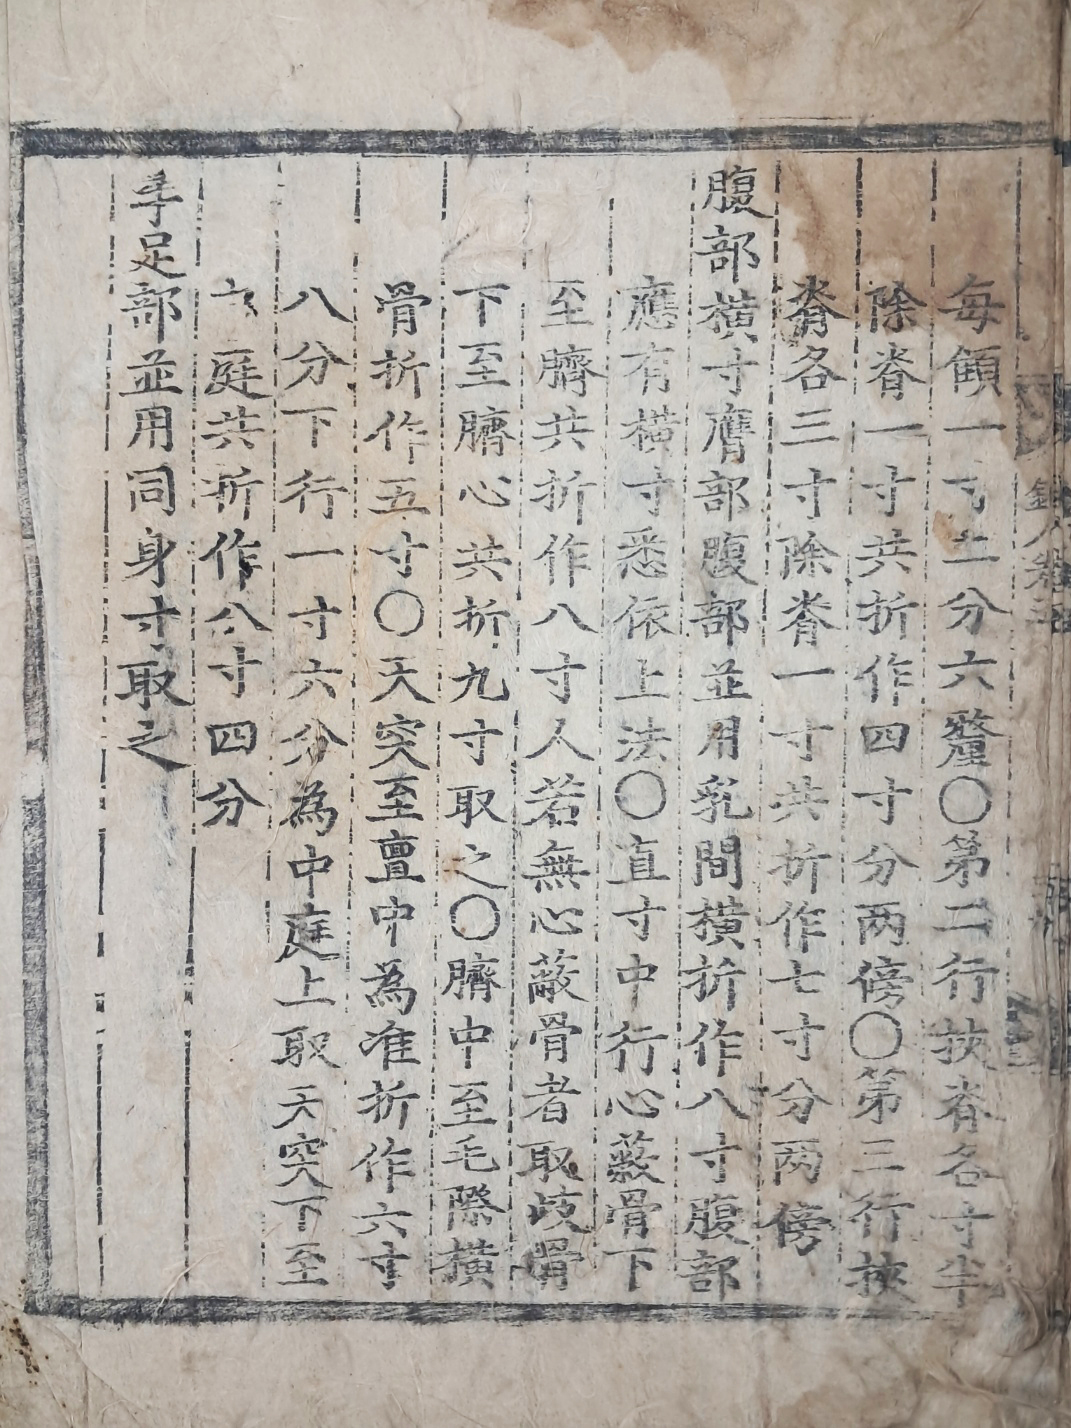 每顀一寸二分六釐〇第二行挾脊各寸半
除脊一寸共折作四寸分两傍〇第三行挾
脊各三寸除脊一寸共折作七寸分两傍
腹部橫寸膺部腹部並用乳間橫折作八寸腹部
應有橫寸悉依上法〇直寸中行心蔽骨下
至臍共折作八寸人若無心蔽骨者取歧骨
下至臍心共折九寸取之〇臍中至毛際橫
骨折作五寸〇天突至亶中為准折作六寸
八分下行一寸六分為中庭上取天突下至
庭共折作八寸四分
手足部並用同身寸取之